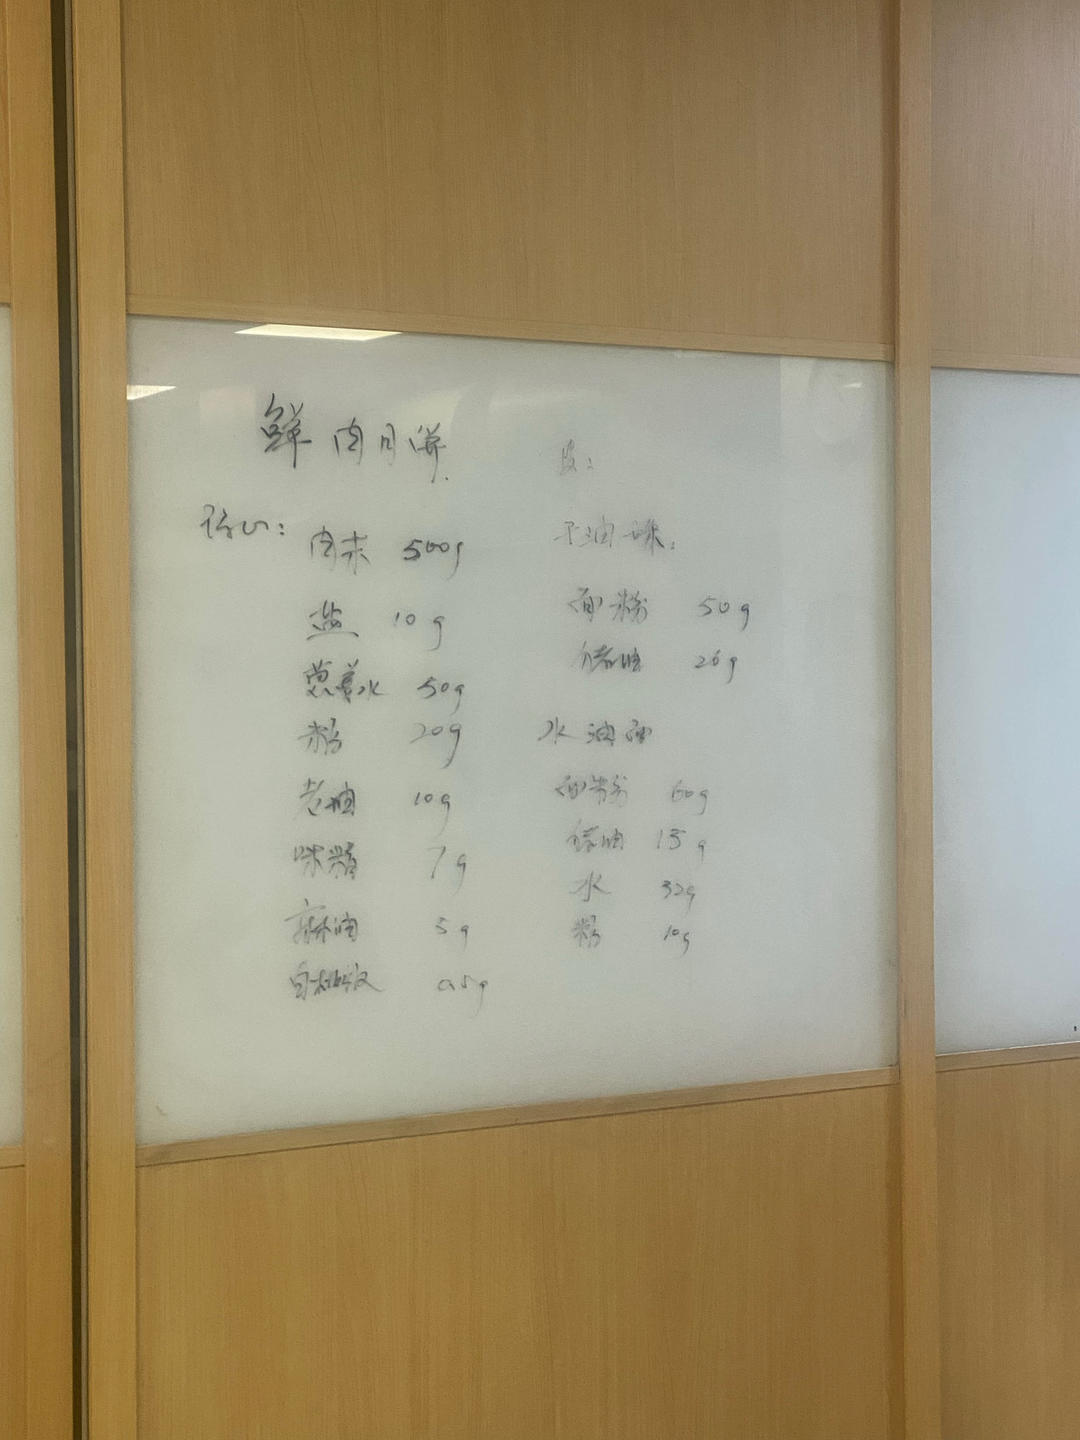 鲜肉月饼
馅心:
肉末 500g
盐 10g
葱姜水 50g
20g
老抽 10g
味精 7g
麻油 5g
白胡椒 0.5g
皮:
干油酥:
面粉 50g
猪油 26g
水油面
面粉 60g
猪油 15g
水 32g
10g